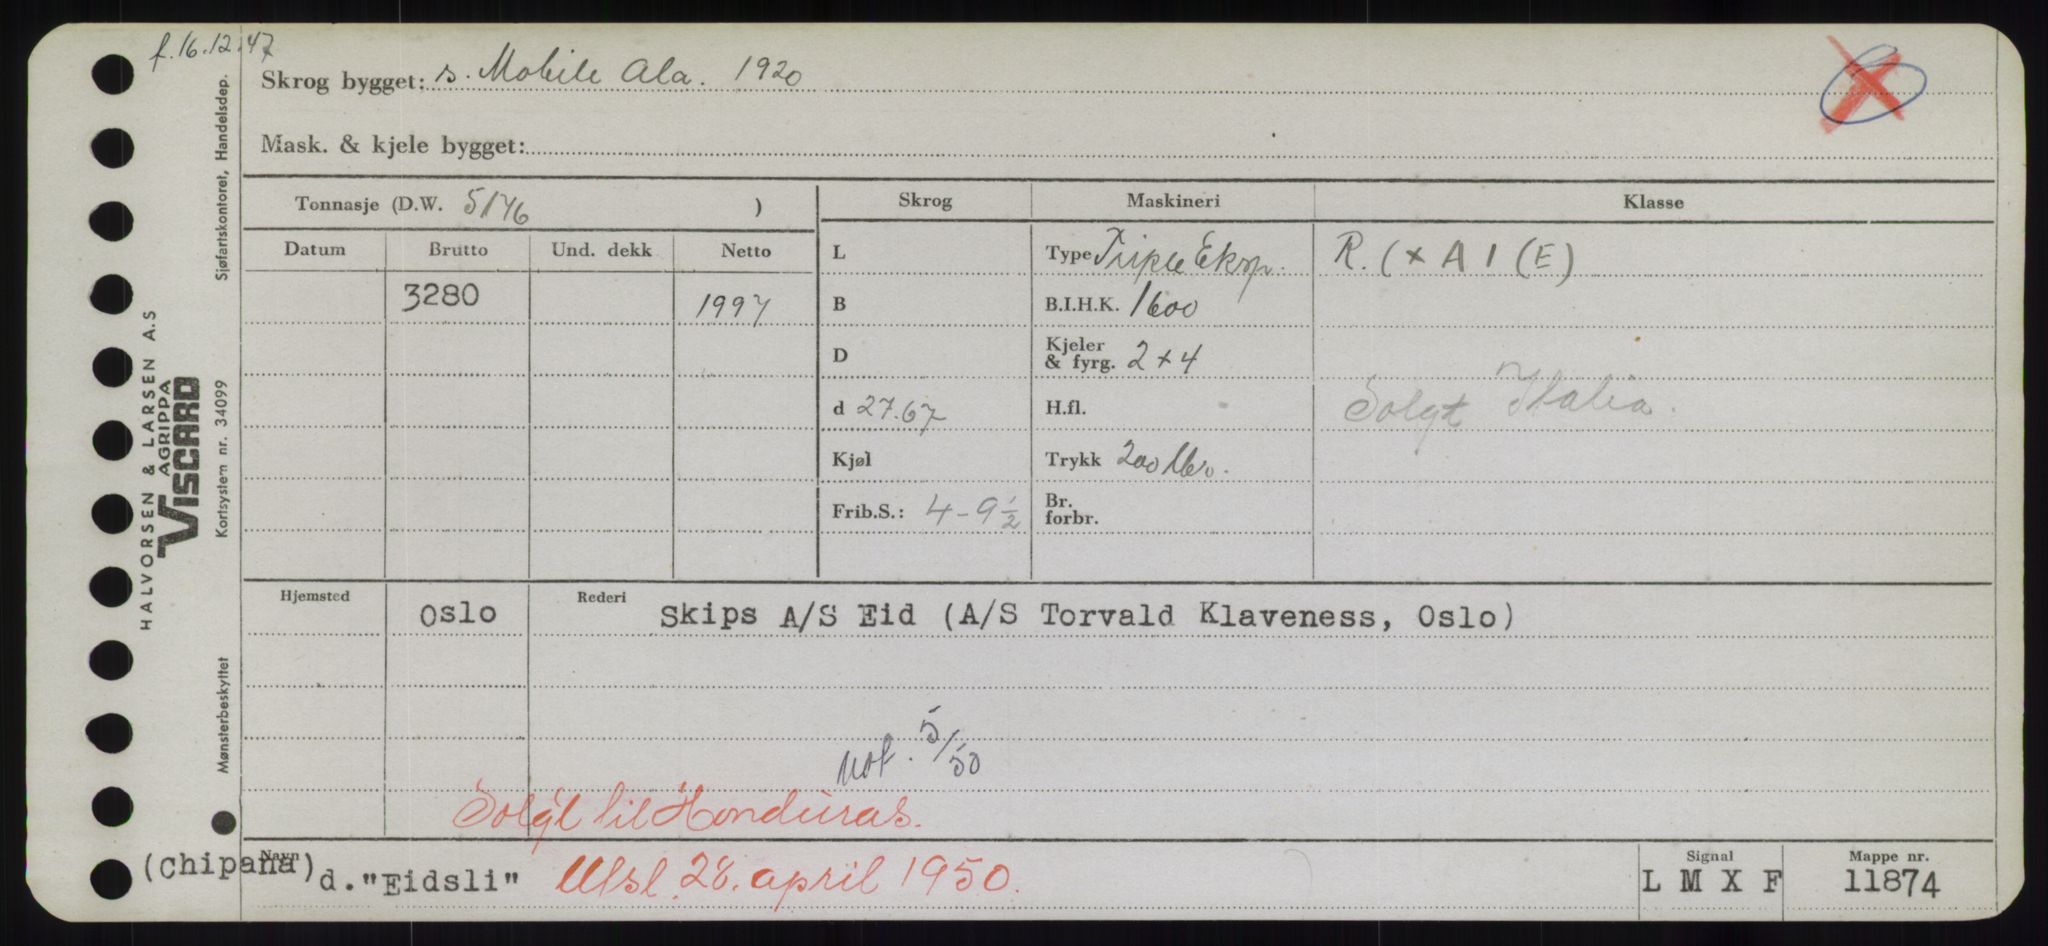 f. 16.12.47
Skrog bygget: s. Mobile Ala. 1920
Mask. & kjele bygget:
Tonnasje (D.W. 5176 )
Skrog
Maskineri
Klasse
Datum Brutto Und. dekk Netto
3280 1997
L
B
D
d 27.67
Kjøl
Frib.S.: 4-9½
Type Triple Eksp.
B.I.H.K. 1600
Kjeler
& fyrg. 2+4
H.fl.
Trykk 200 lbs.
Br.
forbr.
R. (× A 1 (E)
Solgt Italia.
Hjemsted Oslo
Rederi Skips A/S Eid (A/S Torvald Klaveness, Oslo)
not. 5/50
Solgt til Honduras.
Navn
(Chipana) d."Eidsli" Utsl. 28. april 1950.
Signal
L M X F
Mappe nr.
11874
HALVORSEN & LARSEN A.S
AGRIPPA
VISCARD
Mønsterbeskyttet Kortsystem nr. 34099 Sjøfartskontoret, Handelsdep.